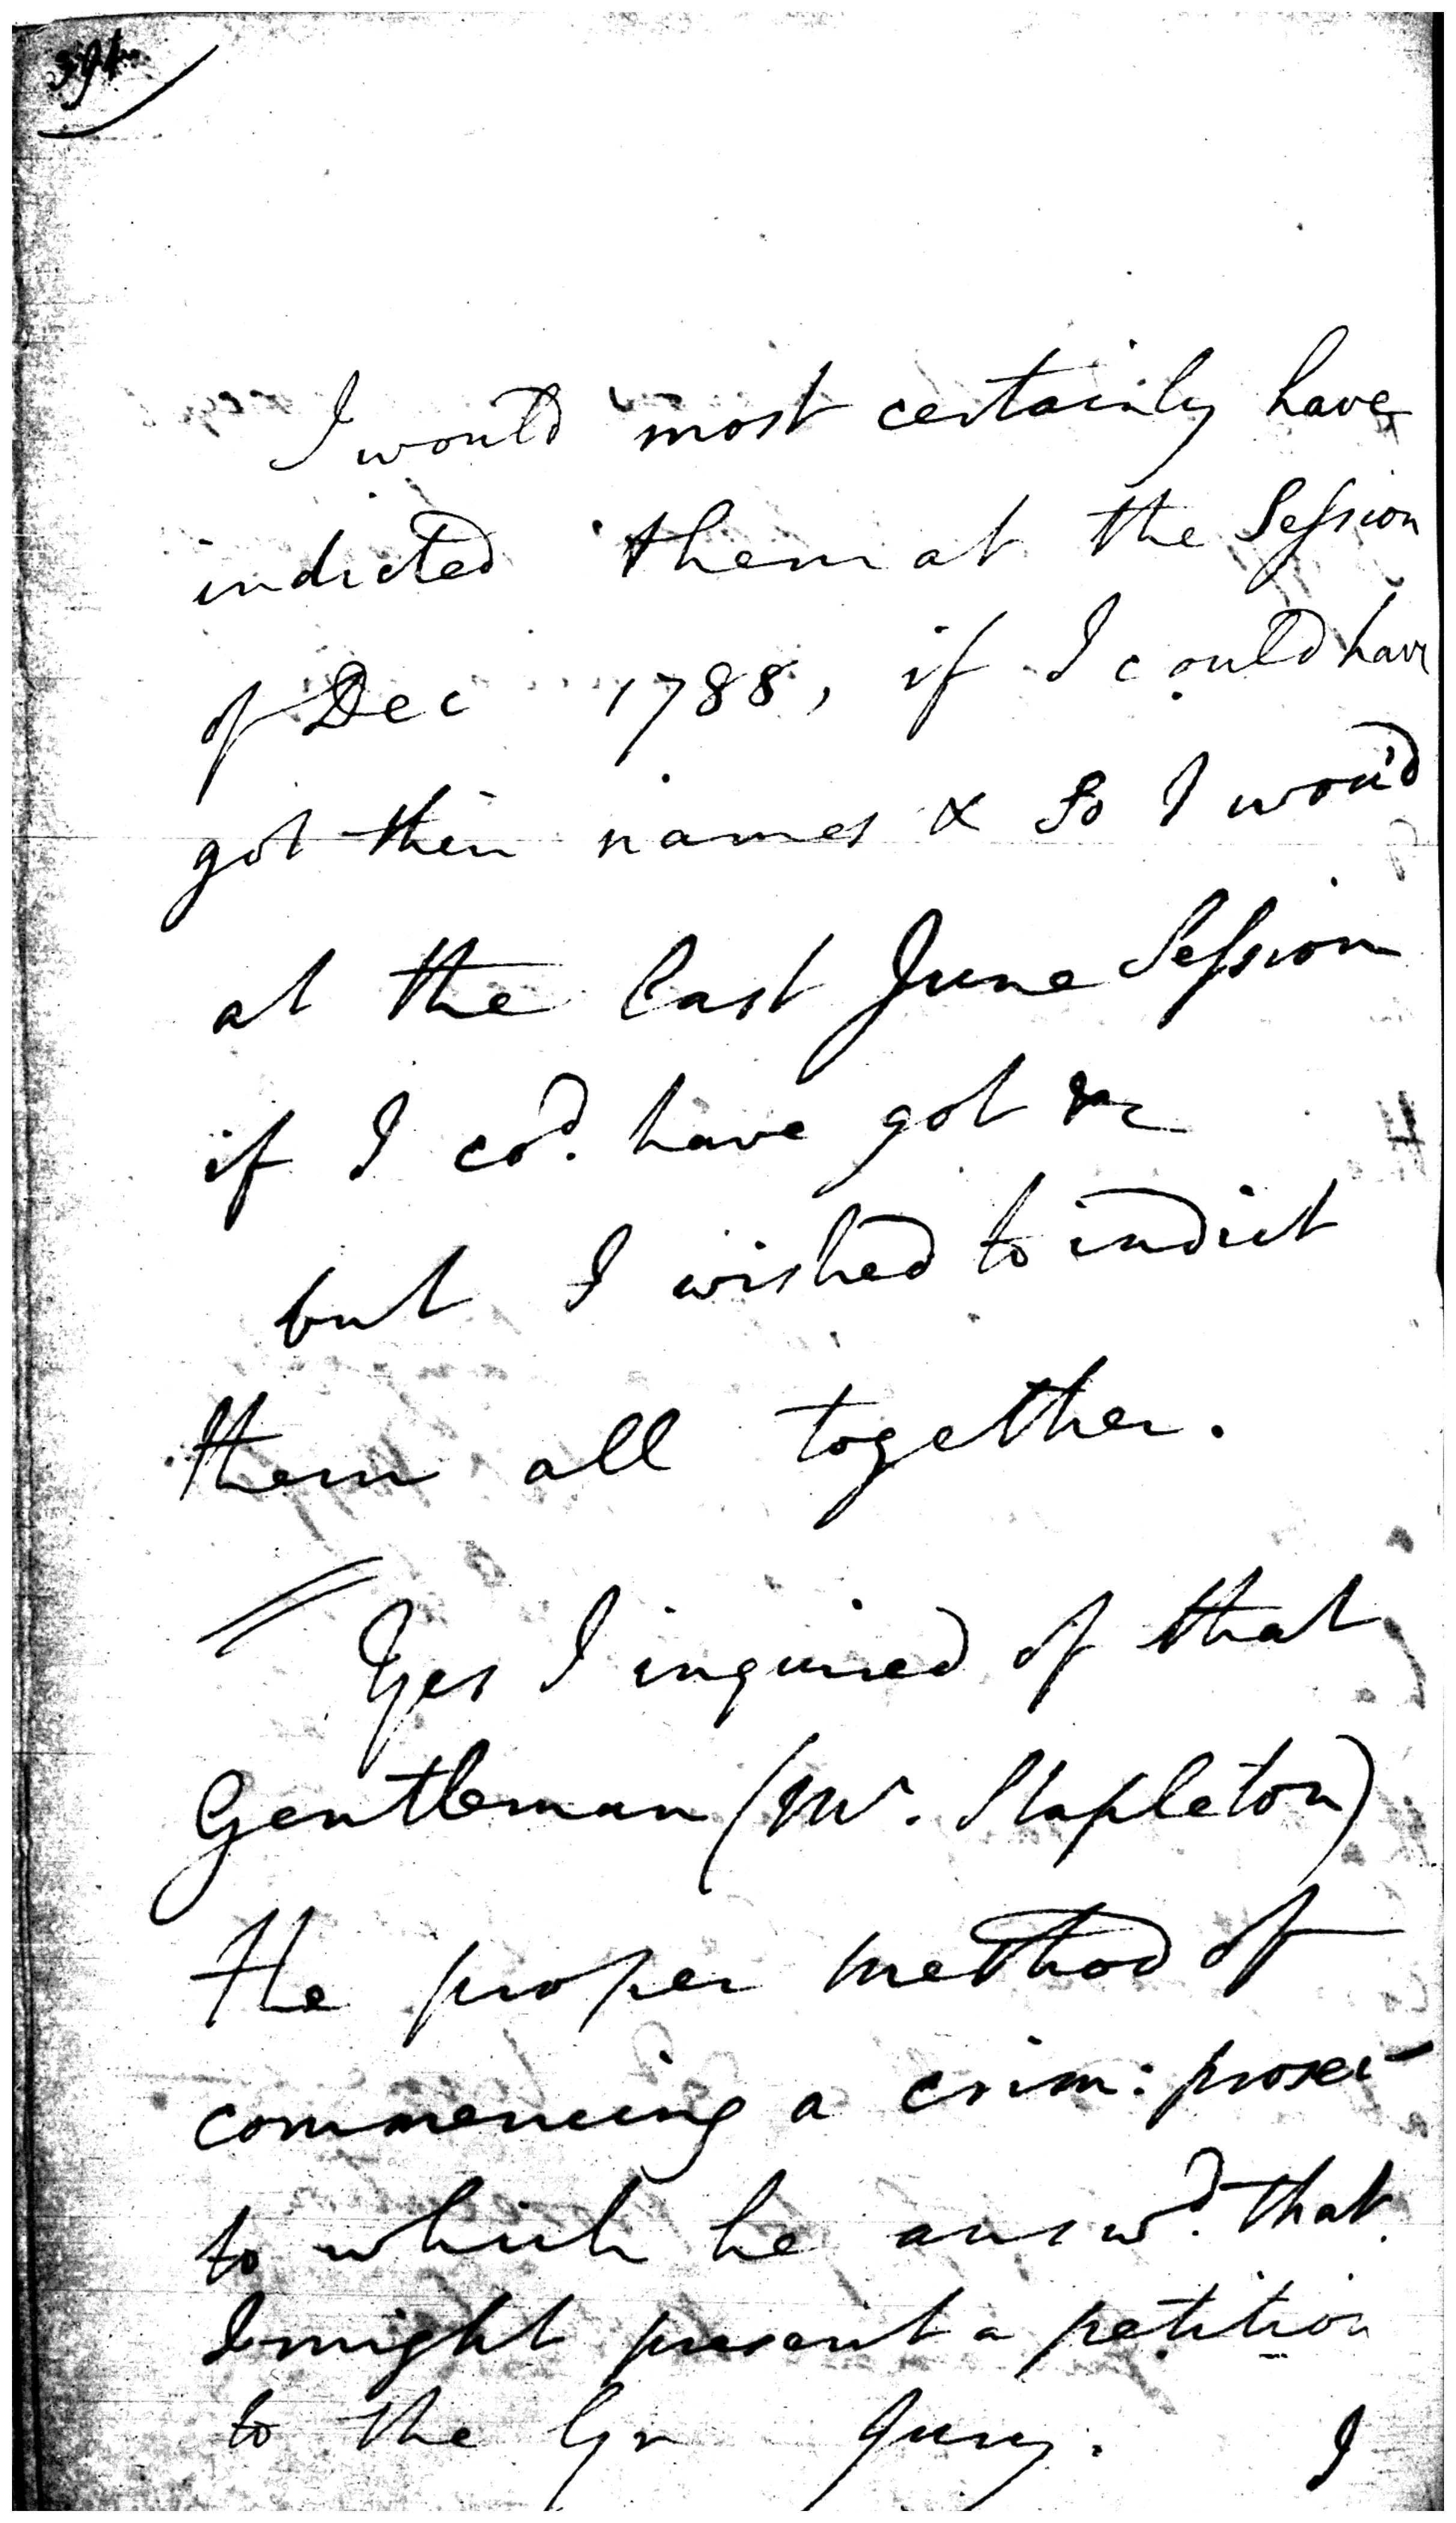 394
I would most certainly have
indicted them at the Session
of Dec 1788, if I could have
got their names & so I wou'd
at the last June Session
if I cod. have got &c
but I wished to indict
them all together.
Yes I inquired of that
Gentleman (Mr. Stapleton)
the proper method of
commencing a crim: prosec
to which he answd. that
I might present a petition
to the Gr Jury. I